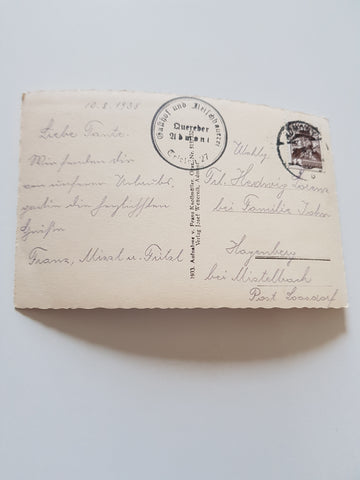 10.8.1938
Liebe Tante.
Wir senden dir
von unserem Urlaub,
die herzlichsten
Grüße
Franz, Mizzl u. Fridal
Gasthof und Fleischhauer
Quereber
Admont
Telefon 27
1933. Aufnahme v. Franz
Verlag Josef
Wohlg.
Frl. Hedwig
bei Familie
Hagenberg
bei Mistelbach
Post Loosdorf